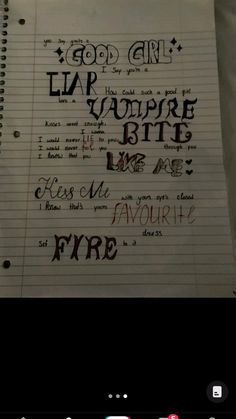 you say you're a
GOOD GIRL
I say you're a
LIAR
How could such a good girl
have a
VAMPIRE
Knees weak enough
I wanna
BITE
I would never LIE to you
I would never hurt you
through you
I know that you
LIKE ME
Kess Me
with your eye's closed
I know that's your
FAVOURITE
dress
Set FIRE to it